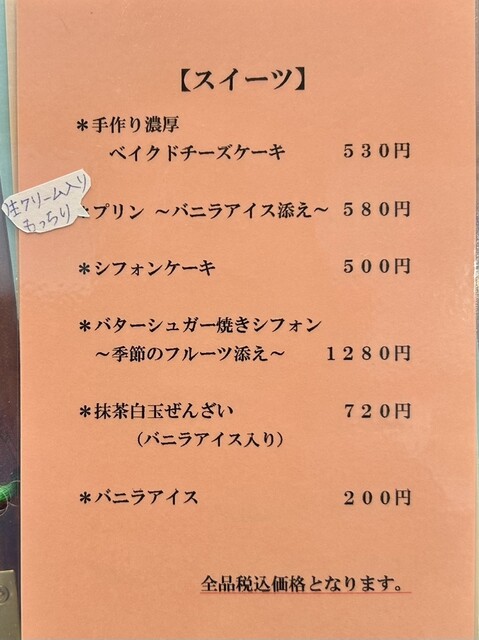 【スイーツ】
＊手作り濃厚
ベイクドチーズケーキ ５３０円
生クリーム入り
もっちり
＊プリン ～バニラアイス添え～ ５８０円
＊シフォンケーキ ５００円
＊バターシュガー焼きシフォン
～季節のフルーツ添え～ １２８０円
＊抹茶白玉ぜんざい ７２０円
（バニラアイス入り）
＊バニラアイス ２００円
全品税込価格となります。